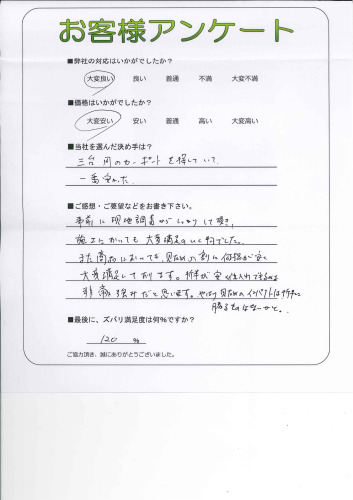 お客様アンケート
■弊社の対応はいかがでしたか？
大変良い 良い 普通 不満 大変不満
■価格はいかがでしたか？
大変安い 安い 普通 高い 大変高い
■当社を選んだ決め手は？
三台用のカーポートを探していて、
一番安かった。
■ご感想・ご要望などをお書き下さい。
事前に現地調査がしっかりして頂き、
施工に かっても 大変満足のいく物でした。
また商品においても、見ための割に価格が安く
大変満足しております。 が安く仕入れできるのは
非常に強みだと思います。やはり見ためのインパクトは
勝るものはないかと。
■最後に、ズバリ満足度は何％ですか？
120 ％
ご協力頂き、誠にありがとうございました。